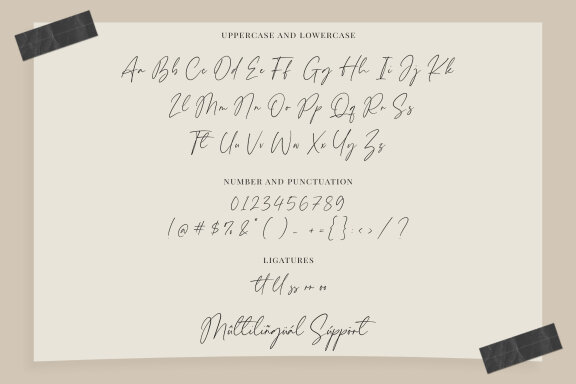 UPPERCASE AND LOWERCASE
Aa Bb Cc Dd Ee Ff Gg Hh Ii Jj Kk
Ll Mm Nn Oo Pp Qq Rr Ss
Tt Uu Vv Ww Xx Yy Zz
NUMBER AND PUNCTUATION
0123456789
!@#$%&*()_+={}:<>/?
LIGATURES
tt ll ss rr oo
Múltilíñgüál Súppört